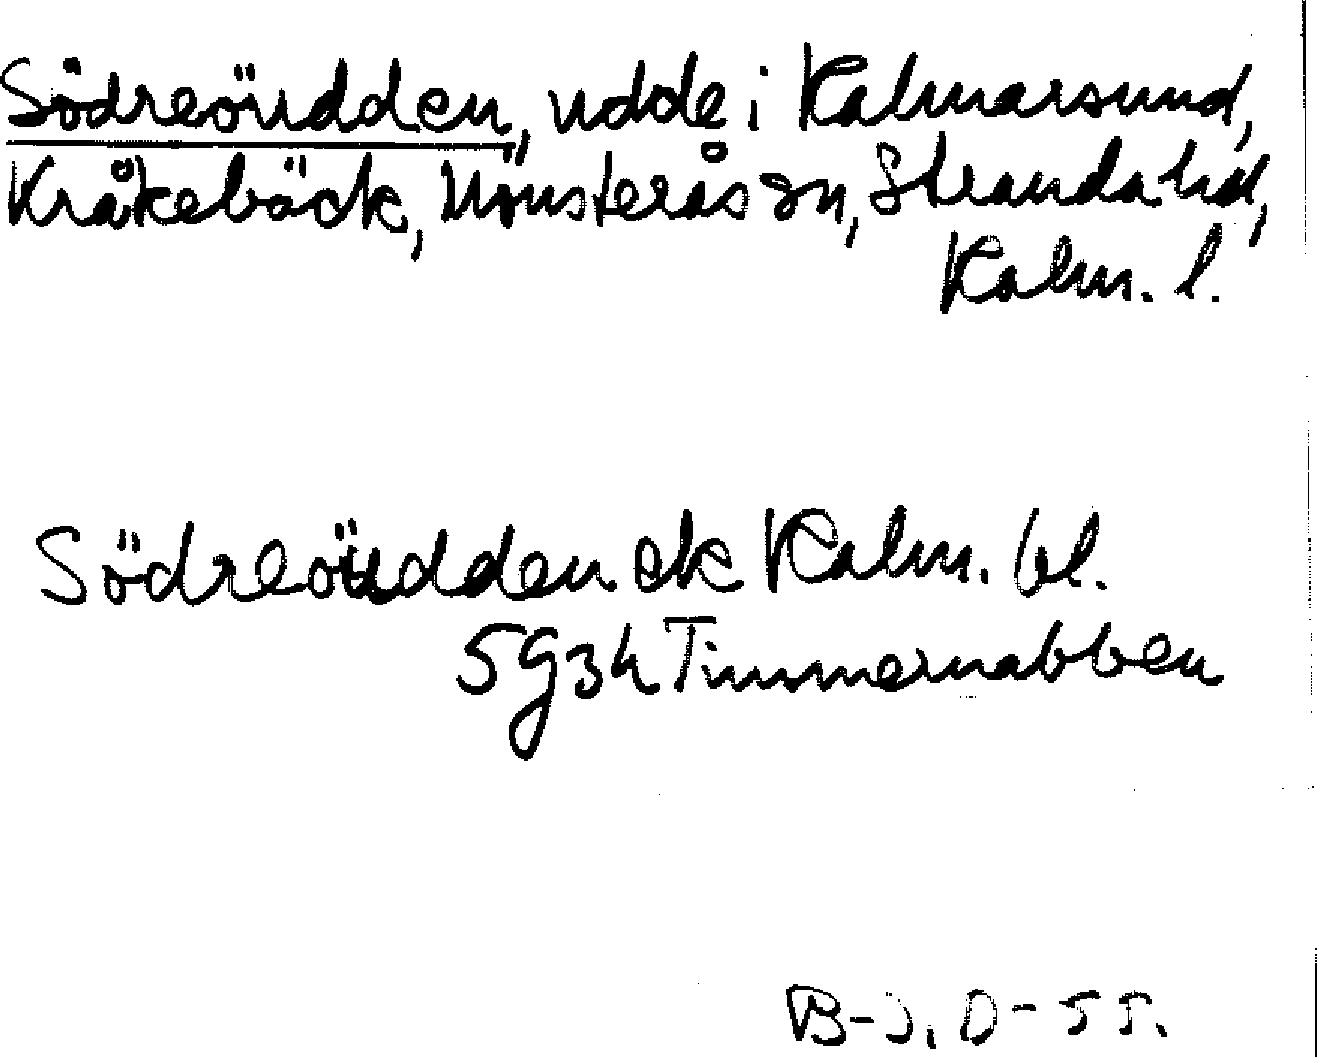 Södreöudden, udde i Kalmarsund,
Kråkebäck, Mönsterås sn, Stranda hd,
Kalm. l.
Södreöudden ek Kalm. bl.
5g3h Timmernabben
B-J. D-55.